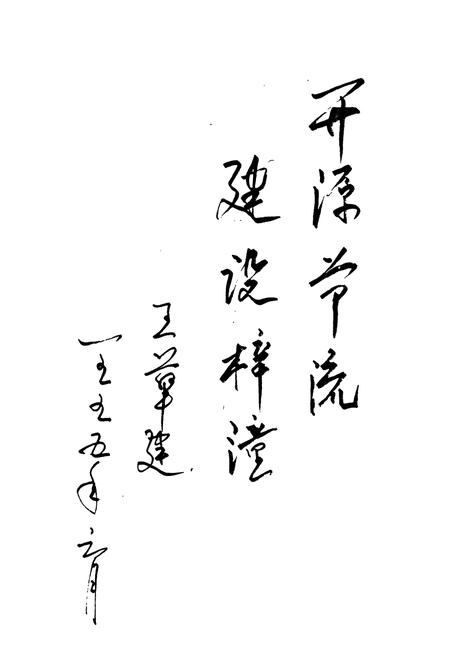 开源节流
建设梓潼
王草建
一九九五年六月